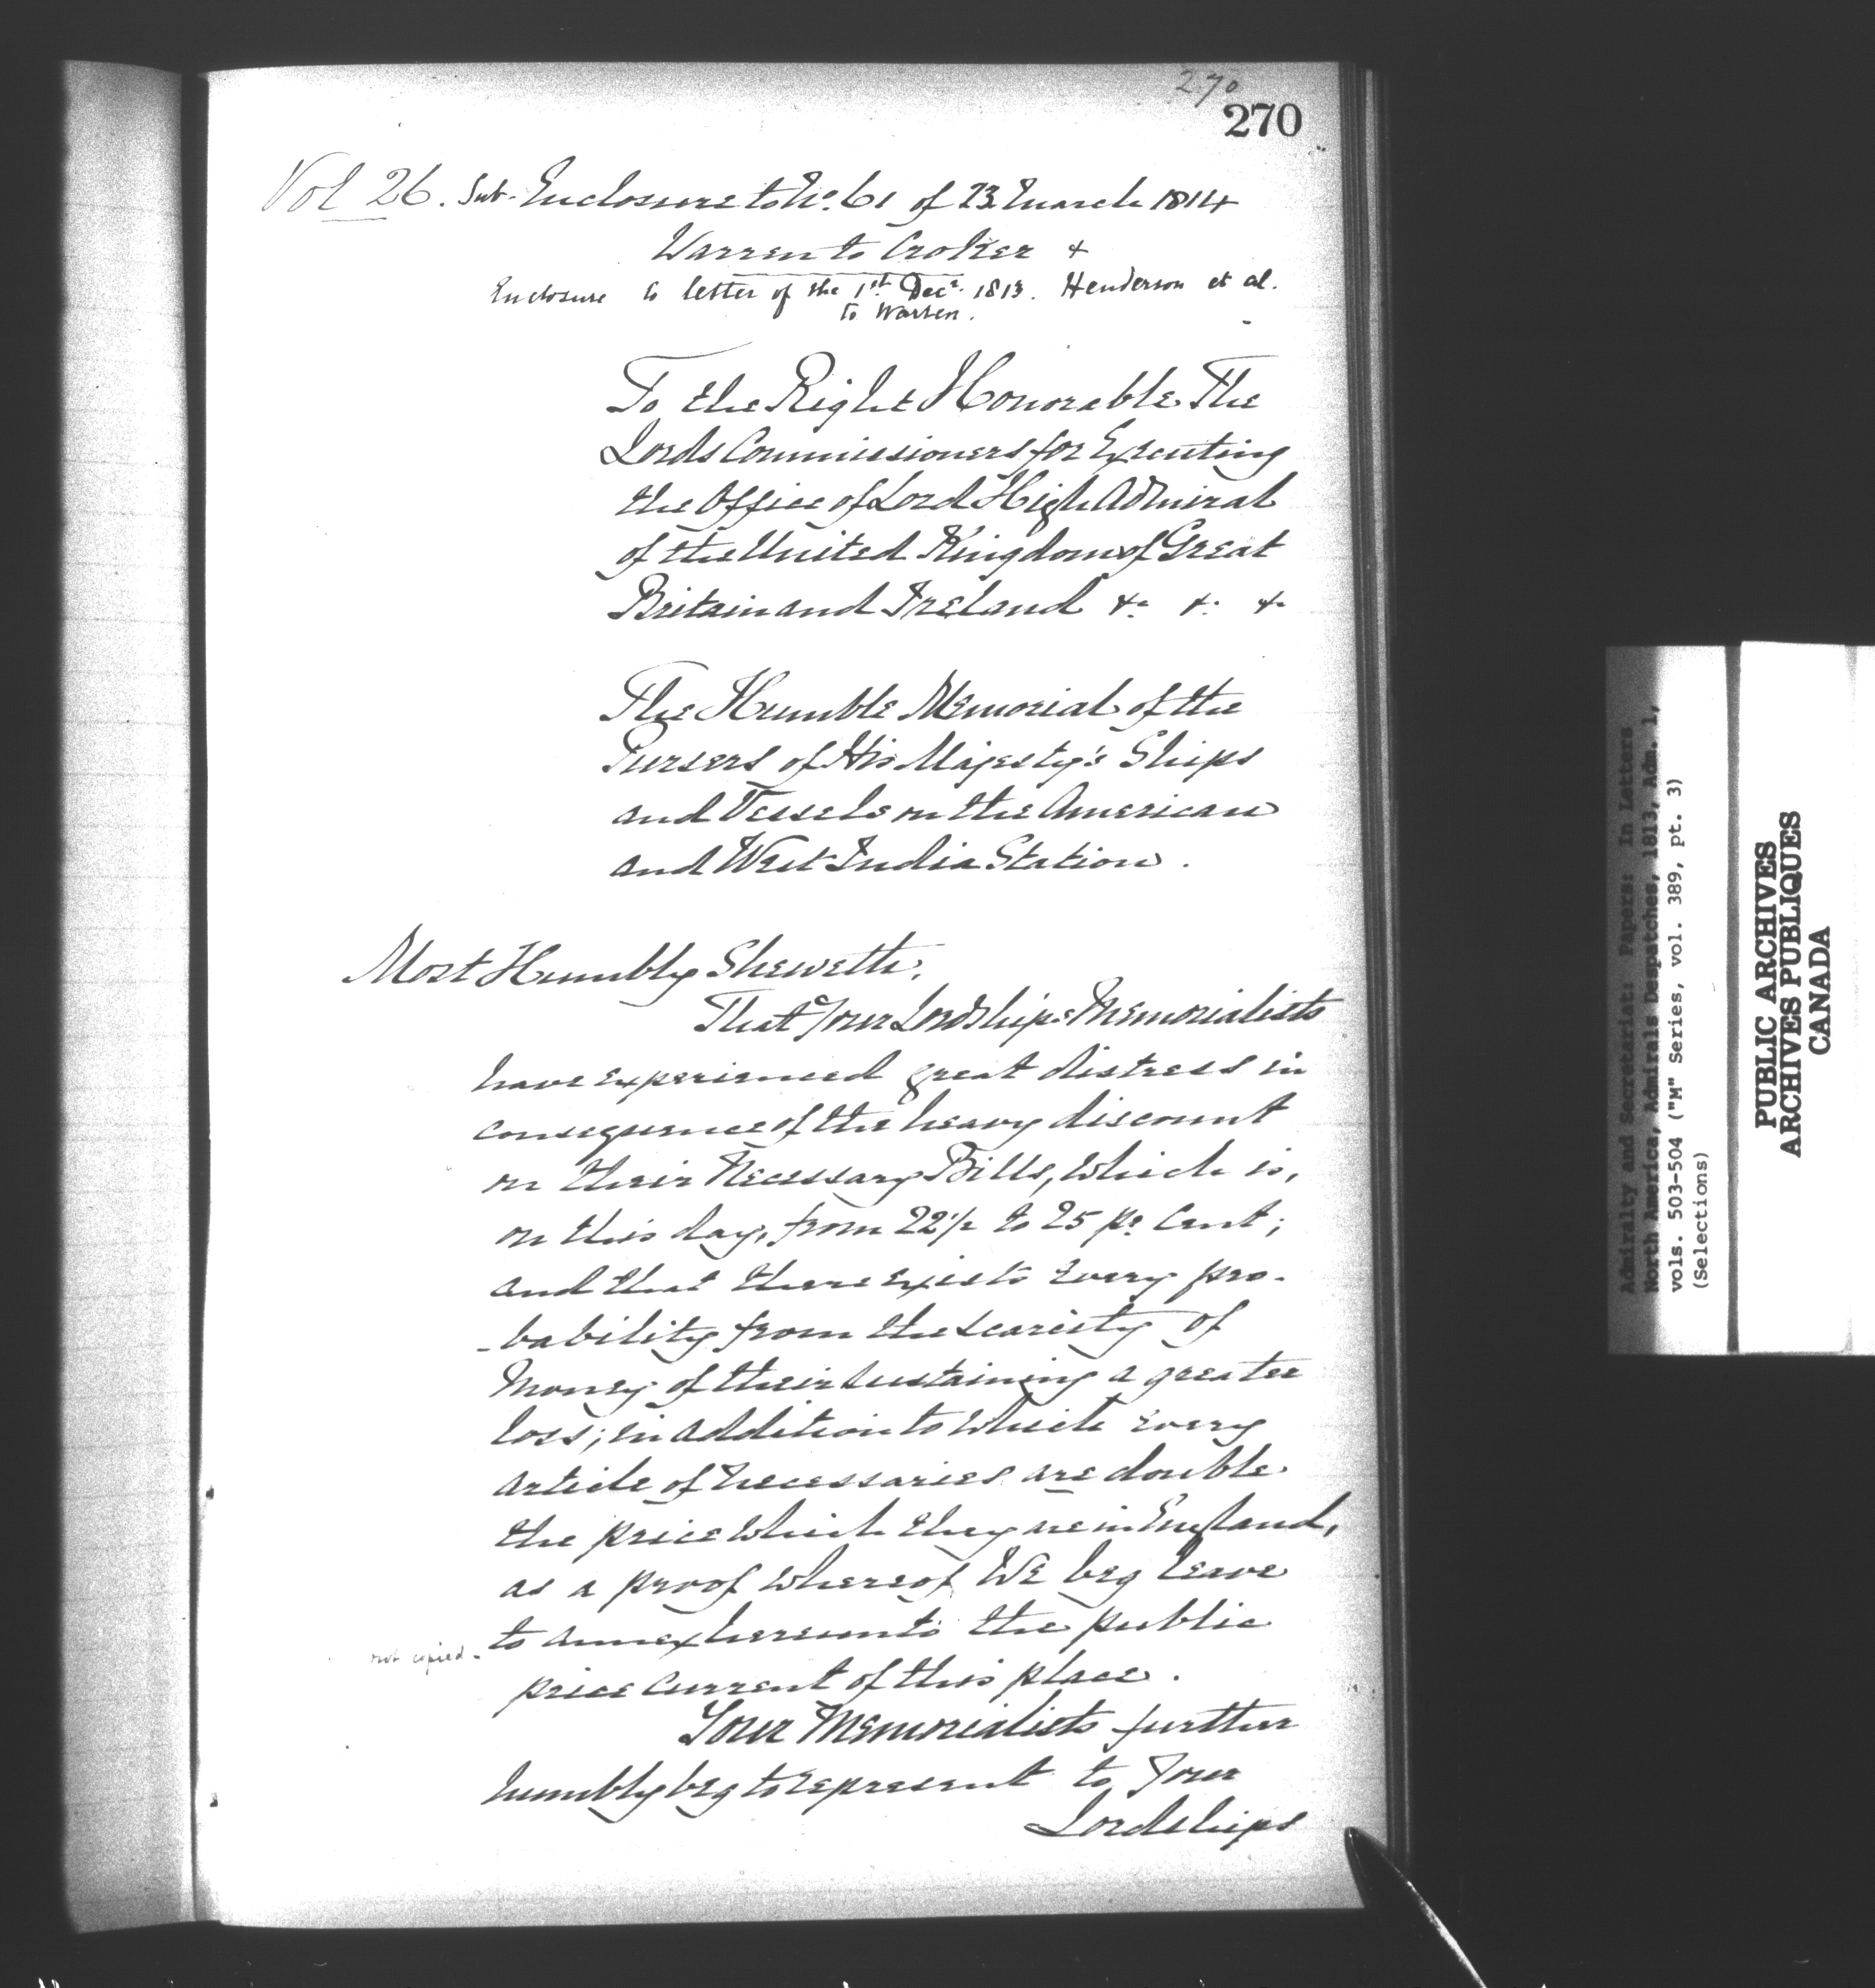 270
270
Vol 26. Sub-Enclosure to No. 61 of 23 March 1814
Warren to Croker &
Enclosure to letter of the 1st Decr. 1813. Henderson et al.
to Warren.
To the Right Honorable The
Lords Commissioners for Executing
the Office of Lord High Admiral
of the United Kingdom of Great
Britain and Ireland &c. &c. &c.
The Humble Memorial of the
Pursers of His Majesty's Ships
and Vessels on the American
and West India Station.
Most Humbly Sheweth,
That Your Lordships Memorialists
have experienced great distress in
consequence of the heavy discount
on their Necessary Bills, which is,
on this day, from 22 1/2 to 25 pr. Cent;
and that there exists every pro-
-bability from the scarcity of
Money of their sustaining a greater
loss; in addition to which every
article of necessaries are double
the price which they are in England,
as a proof whereof We beg leave
not copied - to annex hereunto the public
price current of this place.
Your Memorialists further
humbly beg to represent to Your
Lordships
Admiralty and Secretariat: Papers: In Letters
North America, Admirals Despatches, 1813, Adm. 1,
vols. 503-504 ("M" Series, vol. 389, pt. 3)
(Selections)
PUBLIC ARCHIVES
ARCHIVES PUBLIQUES
CANADA